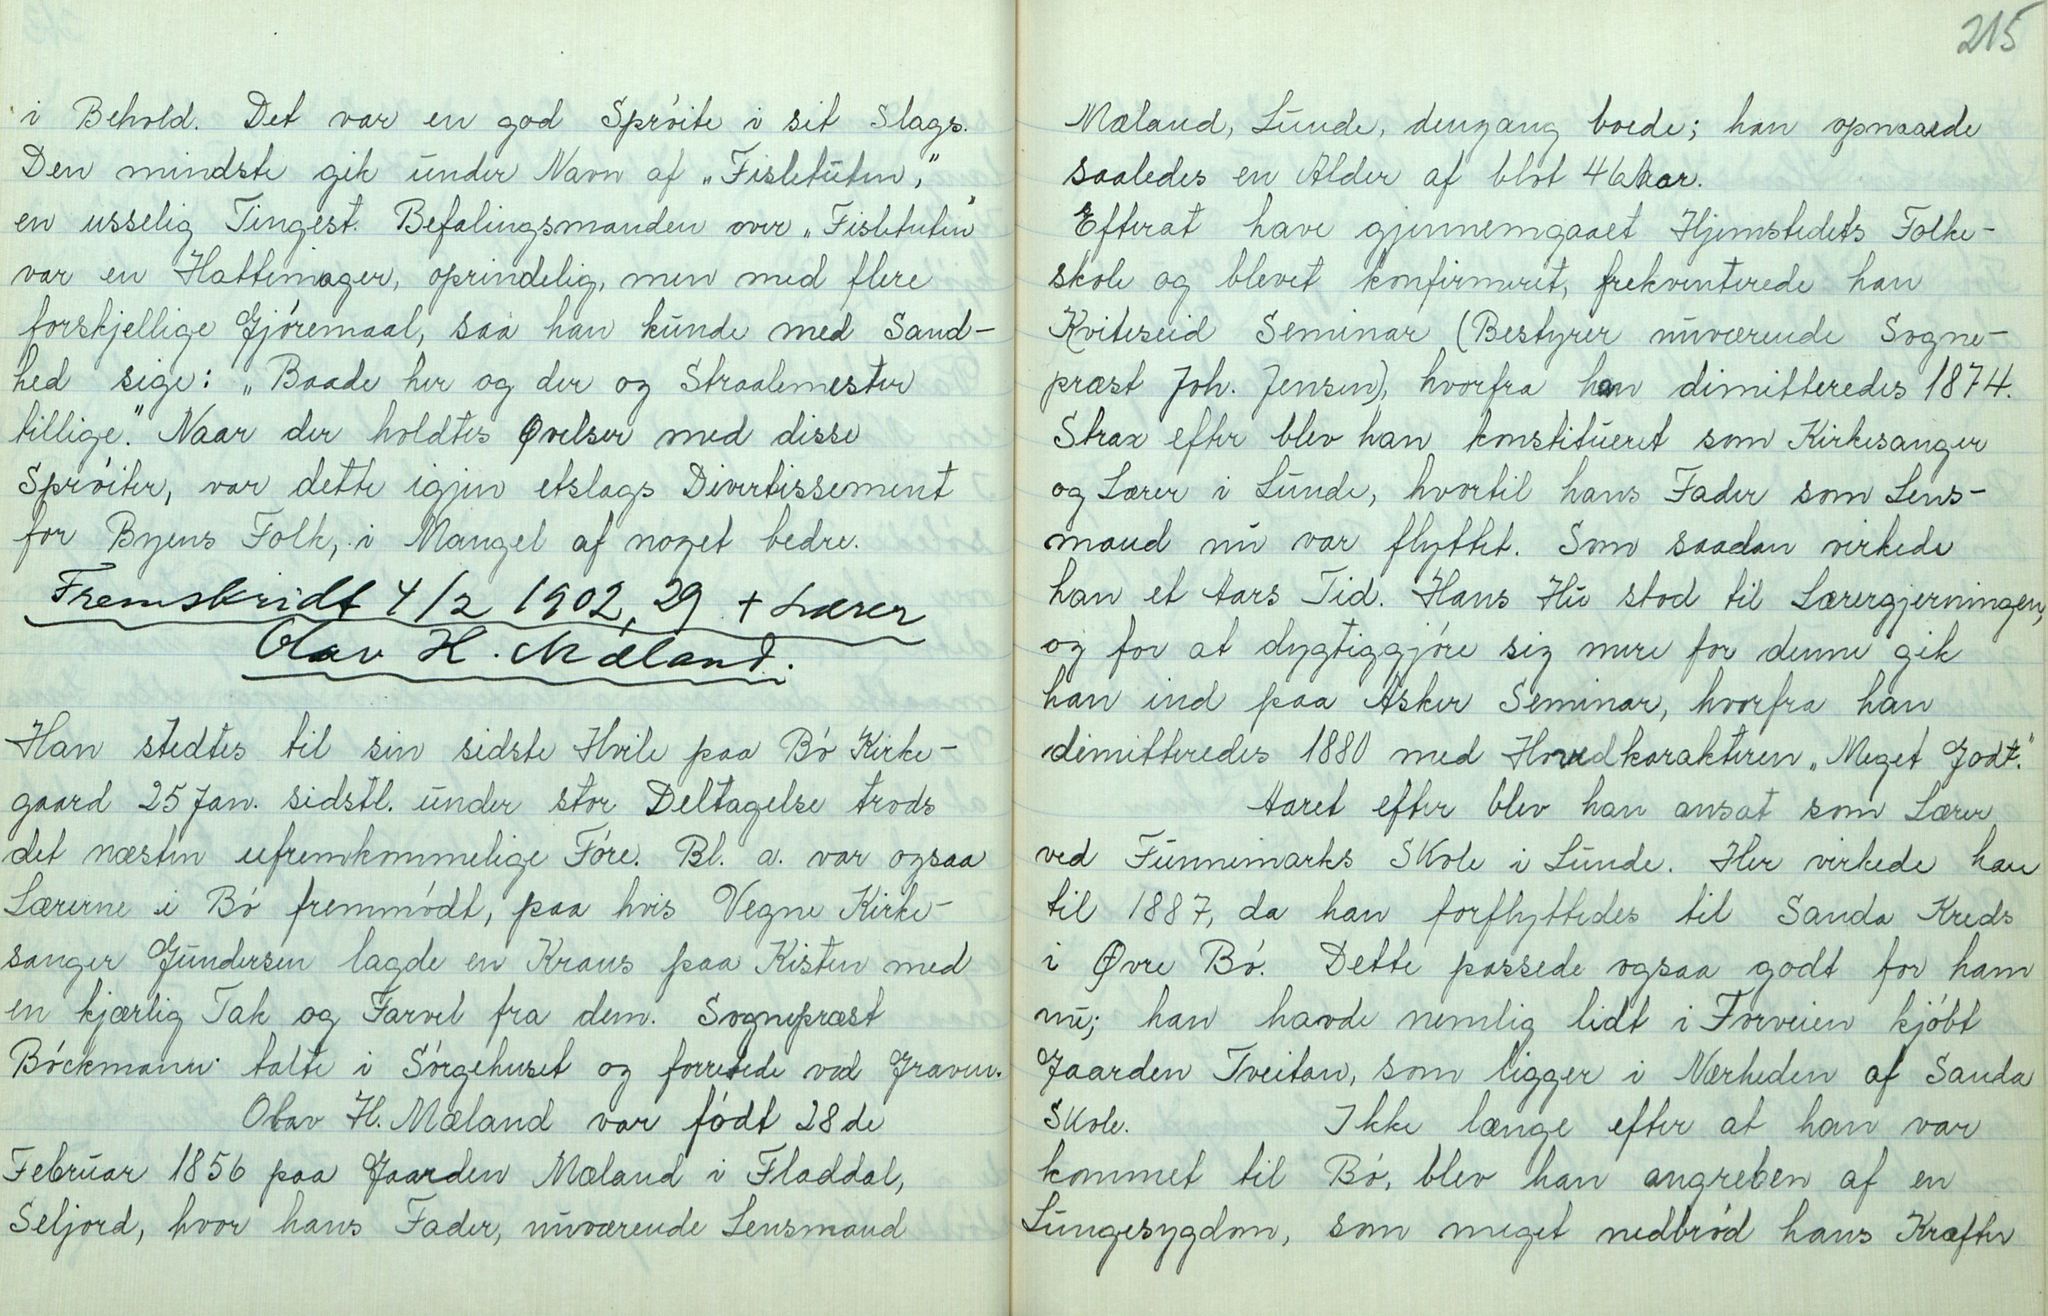 i Behold. Det var en god Sprøite i sit Slags.
Den mindste gik under Navn af „Fisletuten",
en usselig Tingest. Befalingsmanden over „Fisletuten"
var en Hattemager, oprindelig, men med flere
forskjellige Gjøremaal, saa han kunde med Sand-
hed sige: „Baade her og der og Straalemester
tillige." Naar der holdtes Øvelser med disse
Sprøiter, var dette igjen etslags Divertissement
for Byens Folk, i Mangel af noget bedre.
Fremskridt 4/2 1902, 29 + Lærer
Olav H. Mæland.
Han stedtes til sin sidste Hvile paa Bø Kirke-
gaard 25 Jan. sidstl. under stor Deltagelse trods
det næsten ufremkommelige Føre. Bl. a. var ogsaa
Lærerne i Bø fremmødt, paa hvis Vegne Kirke-
sanger Gundersen lagde en Krans paa Kisten med
en kjærlig Tak og Farvel fra dem. Sogneprest
Böckmann talte i Sørgehuset og forrettede ved Graven.
Olav H. Mæland var født 28de
Februar 1856 paa Gaarden Mæland i Fladdal,
Seljord, hvor hans Fader, nuværende Lensmand
215
Mæland, Lunde, dengang boede; han opnaaede
saaledes en Alder af blot 46 Aar.
Efterat have gjennemgaaet Hjemstedets Folke-
skole og blevet konfirmeret, frekventerede han
Kviteseid Seminar (Bestyrer nuværende Sogne-
præst Joh. Jensen), hvorfra han dimitteredes 1874.
Strax efter blev han konstitueret som Kirkesanger
og Lærer i Lunde, hvortil hans Fader som Lens-
mand nu var flyttet. Som saadan virkede
han et Aars Tid. Hans Hu stod til Lærergjerningen,
og for at dygtiggjøre sig mere for denne gik
han ind paa Asker Seminar, hvorfra han
dimitteredes 1880 med Hovedkarakteren „Meget Godt."
Aaret efter blev han ansat som Lærer
ved Funnemarks Skole i Lunde. Her virkede han
til 1887, da han forflyttedes til Sanda Kreds
i Øvre Bø. Dette passede ogsaa godt for ham
nu; han havde nemlig lidt i Forveien kjøbt
Gaarden Tveitan, som ligger i Nærheden af Sanda
Skole. Ikke længe efter at han var
kommet til Bø, blev han angreben af en
Lungesygdom, som meget nedbrød hans Kræfter